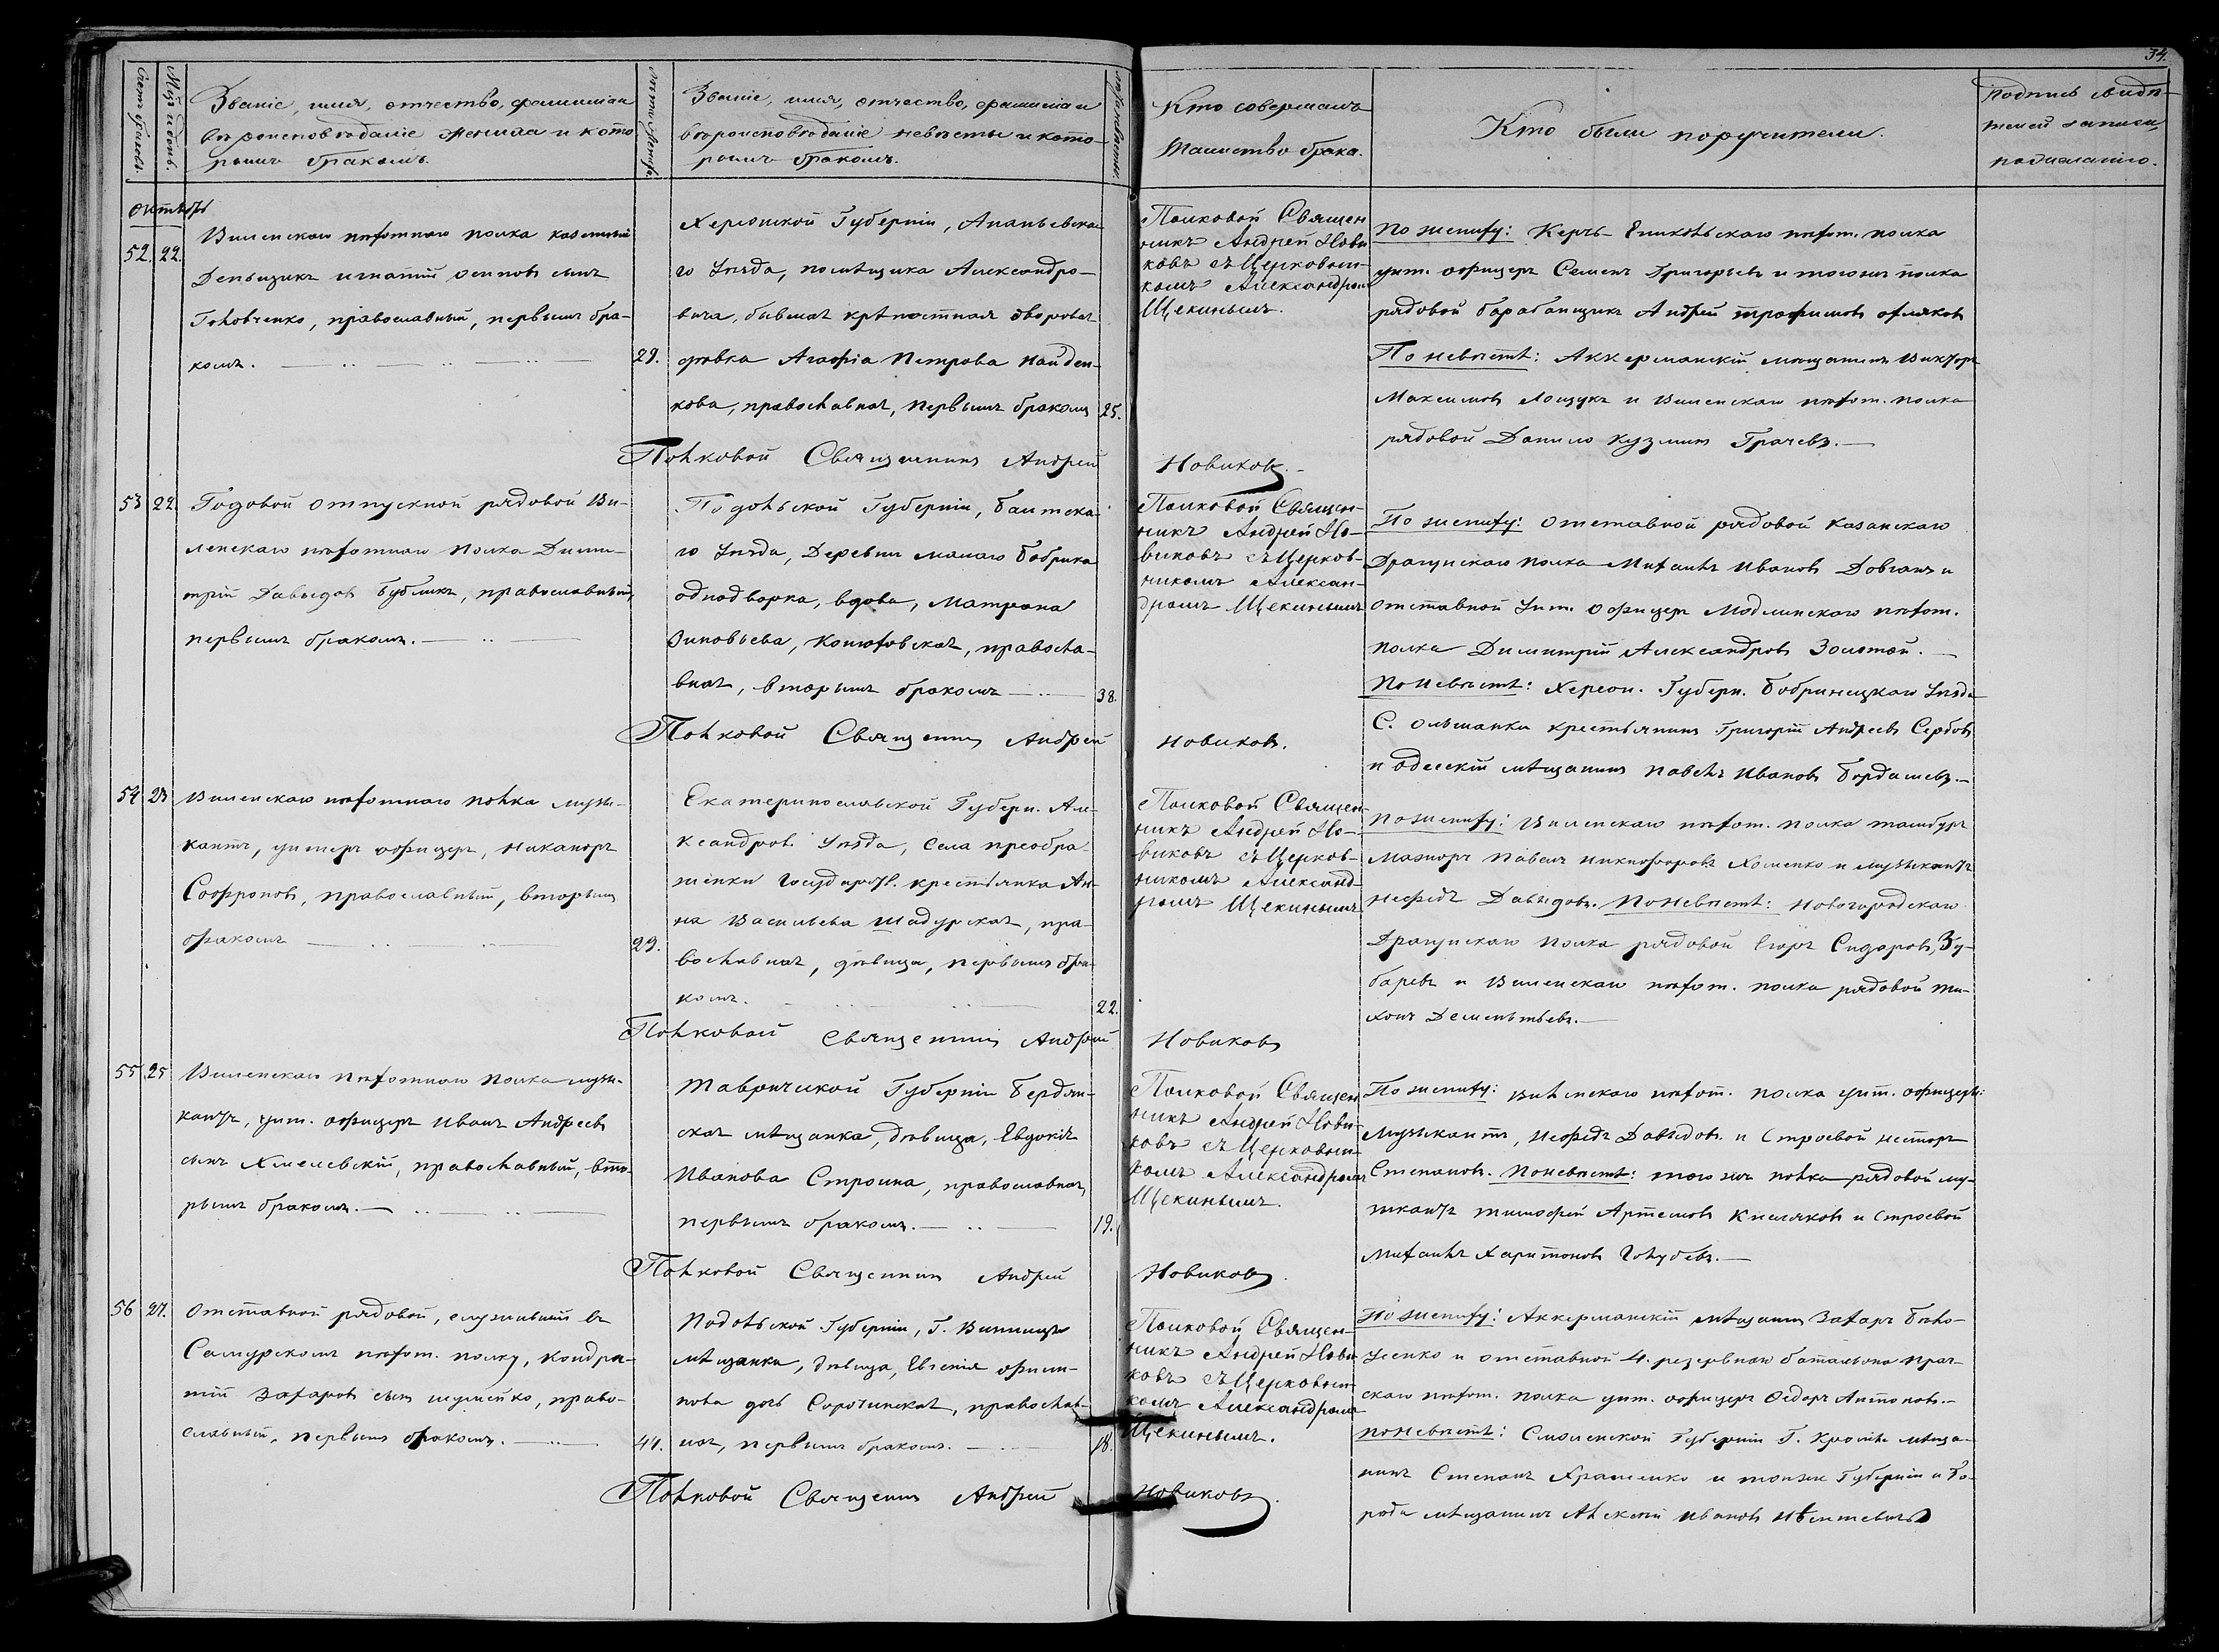 34.
Счетъ браковъ.
Мѣс. и день.
Званіе, имя, отчество, фамилія и
вѣроисповѣданіе жениха и кото
рымъ бракомъ.
Лѣта жениха.
Званіе, имя, отчество, фамилія и
вѣроисповѣданіе невѣсты и кото-
рымъ бракомъ.
Лѣта невѣсты.
Кто совершалъ
таинство брака.
Кто были поручители.
Подпись свидѣ-
телей записи,
по желанію.
октябрь
52. 22.
Виленскаго пѣхотнаго полка казенный
Деньщикъ игнатій осиповъ сынъ
Головченко, православный, первымъ бра-
комъ.
29.
Херсонской Губерніи, Ананьевска-
го Уѣзда, помѣщика Александро-
вича, бывшая крѣпостная дворовая
дѣвка Агафія Петрова Найден-
кова, православная, первымъ бракомъ
25.
Полковой Священ
никъ Андрей Нови
ковъ съ Церковни-
комъ Александромъ
Щекинымъ.
По жениху: Керчь-Ениколѣскаго пѣхот. полка
унт. офицеръ Семенъ Григорьевъ и тогожъ полка
рядовой барабанщикъ Андрей трофимовъ
По невѣстѣ: Аккерманскій мѣщанинъ Викторъ
Максимовъ Лощукъ и Виленскаго пѣхот. полка
рядовой Данило Кузминъ Грачевъ.
Полковой Священникъ Андрей Новиковъ.
53 22.
Годовой отпускной рядовой Ви-
ленскаго пѣхотнаго полка Дими-
трій Давыдовъ Бубликъ, православный,
первымъ бракомъ.
Подольской Губерніи, балтска-
го Уѣзда, Деревни малаго бобрика
однодворка, вдова, Матрона
Зиновьева, Конюховская, правосла-
вная, вторымъ бракомъ
38.
Полковой Священ-
никъ Андрей Но-
виковъ съ Церков-
никомъ Алексан-
дромъ Щекинымъ
По жениху: отставной рядовой Казанскаго
Драгунскаго полка Михаилъ Ивановъ Довганъ и
отставной Унт. офицеръ Модлинскаго пѣхот.
полка Димитрій Александровъ Золотой.
По невѣстѣ: Херсон. Губерн. бобринецкаго Уѣзда
С. ольшанки крестьянинъ Григорій Андреевъ Сербовъ
и одесскій мѣщанинъ Павелъ Ивановъ Бордашевъ.
Полковой Священникъ Андрей Новиковъ.
54 23
Виленскаго пѣхотнаго полка музы-
кантъ, унтеръ офицеръ, Никаноръ
Софроновъ, православный, вторымъ
бракомъ
29.
Екатеринославской Губерн. Але-
ксандров. Уѣзда, Села преобра-
женки Государст. крестьянка Ан-
на Васильева Шадурская, пра-
вославная, дѣвица, первымъ бра-
комъ.
22.
Полковой Священ-
никъ Андрей Но-
виковъ съ Церков-
никомъ Александ-
ромъ Щекинымъ
По жениху: Виленскаго пѣхот. полка тамбуръ
мажоръ Павелъ никифоровъ Хоменко и музыкантъ
нефедъ Давыдовъ. По невѣстѣ: Новогородскаго
Драгунскаго полка рядовой Егоръ Сидоровъ, Зу-
баревъ и Виленскаго пѣхот. полка рядовой ти-
хонъ Дементьевъ.
Полковой Священникъ Андрей Новиковъ
55 25
Виленскаго пѣхотнаго полка музы-
кантъ, унт. офицеръ Иванъ Андреевъ
сынъ Хмелевскій, православный, вто-
рымъ бракомъ.
Таврической Губерніи Бердян-
ская мѣщанка, дѣвица, Евдокія
Иванова Строина, православная,
первымъ бракомъ.
19.
Полковой Священ
никъ Андрей Нови
ковъ съ Церковни-
комъ Александромъ
Щекинымъ.
По жениху: виленскаго пѣхот. полка унт. офицеры:
музыкантъ, Нефедъ Давыдовъ и Строевой несторъ
Степановъ. По невѣстѣ: тогожъ полка рядовой му-
зыкантъ тимофей Артемовъ Кисляковъ и Строевой
Михаилъ Харитоновъ Голубевъ.
Полковой Священникъ Андрей Новиковъ.
56 27.
Отставной рядовой, служивший въ
Самурскомъ пѣхот. полку, Кондра-
тій Захаровъ сынъ шулейко, право-
славный, первымъ бракомъ.
44.
Подольской Губерніи, Г. Винницы
мѣщанка, дѣвица, Евгенія фили-
пова дочь Сорочинская, православ-
ная, первымъ бракомъ.
18.
Полковой Священ-
никъ Андрей Нови
ковъ съ Церковни-
комъ Александромъ
Щекинымъ.
По жениху: Аккерманскій мѣщанинъ Захаръ Бѣло-
усенко и отставной 4. резервнаго баталіона праг-
скаго пѣхот. полка унт. офицеръ Федоръ Антоновъ.
По невѣстѣ: Смоленской Губерніи Г. Краснаго мѣща-
нинъ Степанъ Храменко и тойже Губерніи и Го-
рода мѣщанинъ Алексѣй Ивановъ
Полковой Священникъ Андрей Новиковъ.